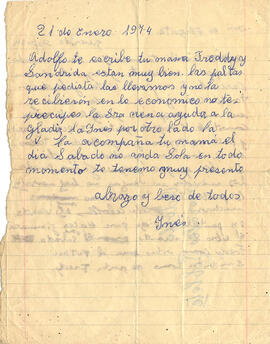 21 de Enero 1974
Adolfo te escribe tu mamá Freddy y
Sandrida estan muy bien. las paltas
que pediata las llevamos y no la
recibieron en lo economico no te
precupes la Sra nena ayuda a la
Gladiz la Ines por otro lado la
V. la acompaña tu mamá el
dia Sabado no anda Sola en todo
momento te tenemo muy presente
abrazo y beso de todos
Ines